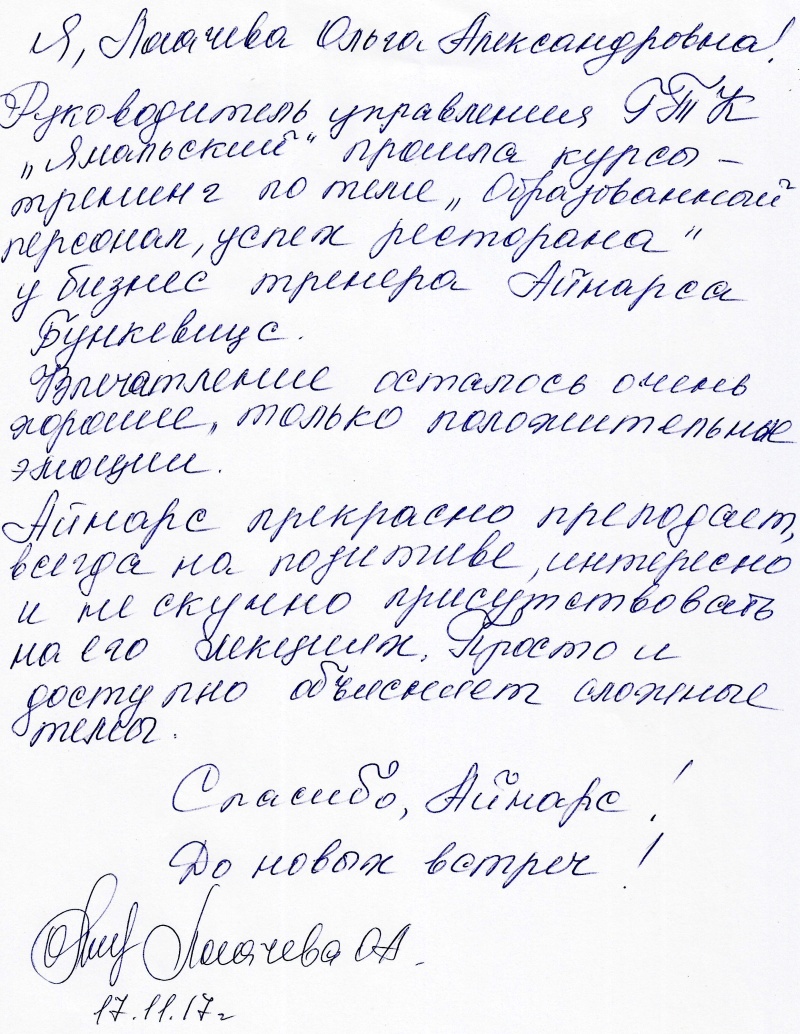 Я, Лачева Ольга Александровна!
Руководитель управления ГТК
„Ямальский" прошла курсы –
тренинг по теме „Образованный
персонал, успех ресторана"
у бизнес тренера Айнарса
Бункевицс.
Впечатление осталось очень
хорошие, только положительные
эмоции.
Айнарс прекрасно преподает,
всегда на позитиве, интересно
и не скучно присутствовать
на его лекциях. Просто и
доступно объясняет сложные
темы.
Спасибо, Айнарс!
До новых встреч!
ОА.
17.11.17г